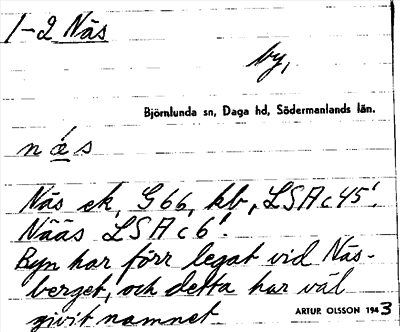 1-2 Näs
by,
Björnlunda sn, Daga hd, Södermanlands län.
næ´s
Näs ek, G66, kb, LSA c 45'.
Nääs LSA c 6'.
Byn har förr legat vid Näs-
berget, och detta har väl
givit namnet
ARTUR OLSSON 1943